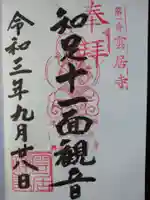 第一番
雲居寺
奉拝
知足十一面観音
令和三年九月廿八日